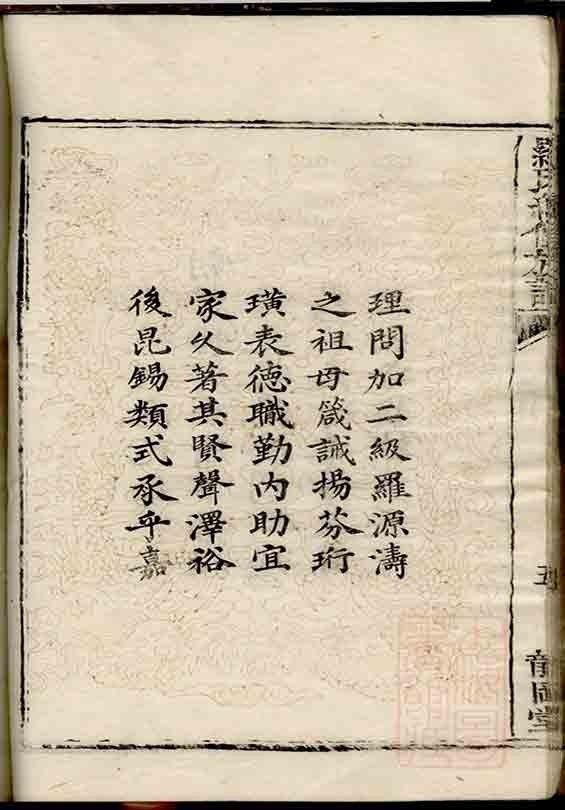 理問加二級羅源濤
之祖母箴誡揚芬珩
璜表德職勤內助宜
家久著其賢聲澤裕
後昆錫類式承乎嘉
羅氏通修族譜
五